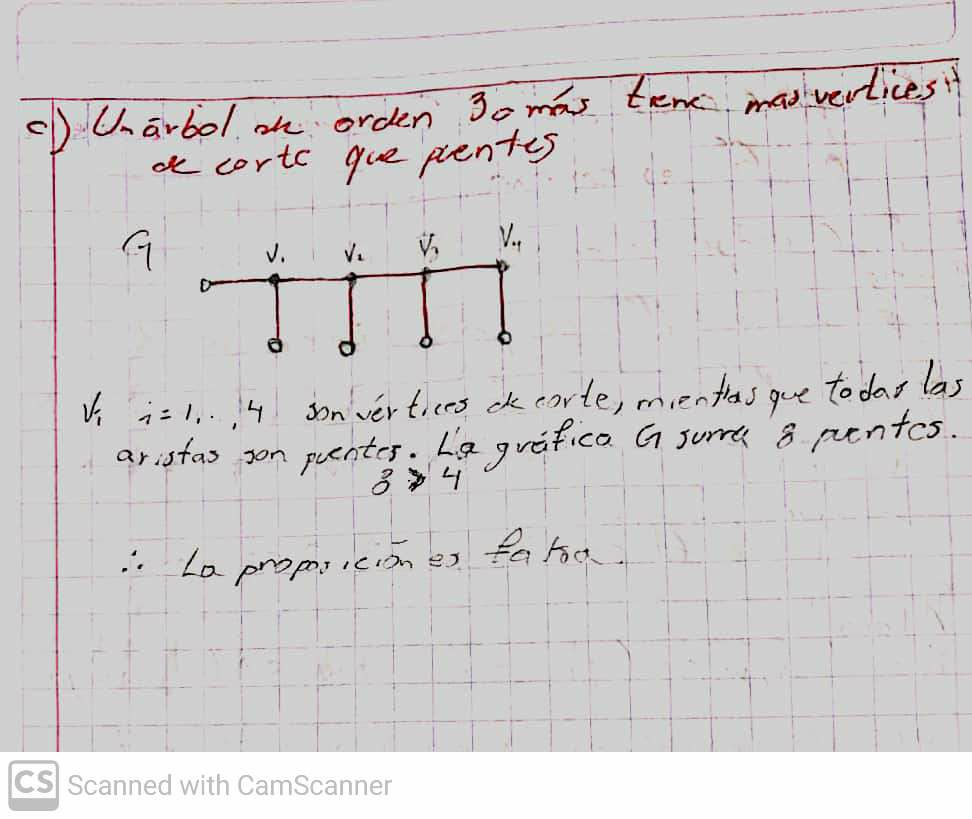 c) Un árbol de orden 3 o más tiene mas vertices
de corte que puentes
G V₁ V₂ V₃ V₄
Vᵢ i=1,..,4 son vértices de corte, mientras que todas las
aristas son puentes. La gráfica G suma 8 puentes.
8 > 4
∴ La proposición es falsa.
CS Scanned with CamScanner